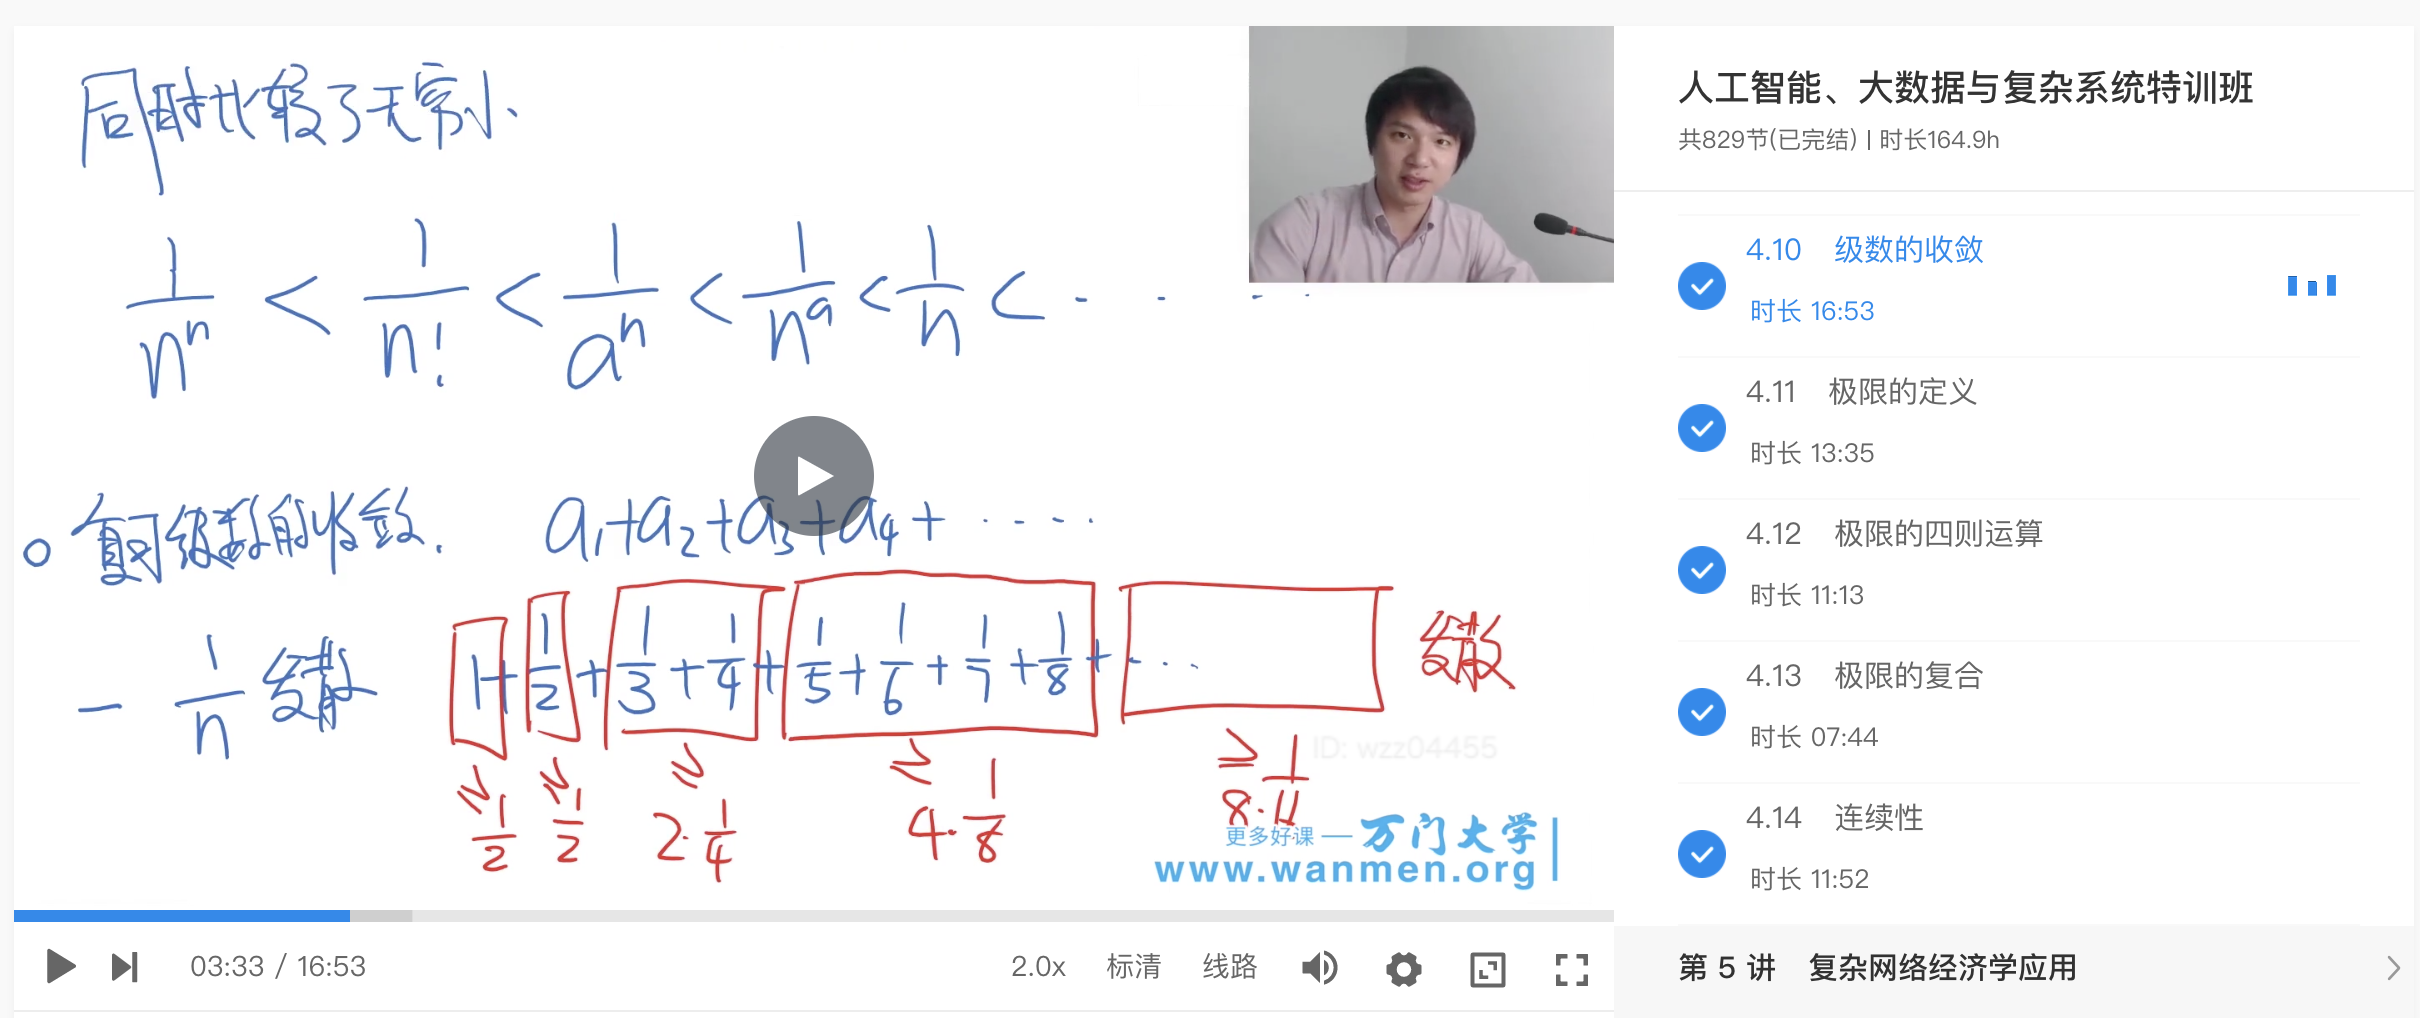 同时比较了无穷小
1/n^n < 1/n! < 1/a^n < 1/n^a < 1/n < · · ·
○ 复习级数的收敛. a₁+a₂+a₃+a₄+ ·····
— 1/n 发散 1+1/2+1/3+1/4+1/5+1/6+1/7+1/8+··· 发散
≥1/2 ≥1/2 ≥2·1/4 ≥4·1/8 ≥8·1/
ID: wzz04455
更多好课 — 万门大学
www.wanmen.org
03:33 / 16:53 2.0x 标清 线路
人工智能、大数据与复杂系统特训班
共829节(已完结) | 时长164.9h
4.10 级数的收敛
时长 16:53
4.11 极限的定义
时长 13:35
4.12 极限的四则运算
时长 11:13
4.13 极限的复合
时长 07:44
4.14 连续性
时长 11:52
第 5 讲 复杂网络经济学应用